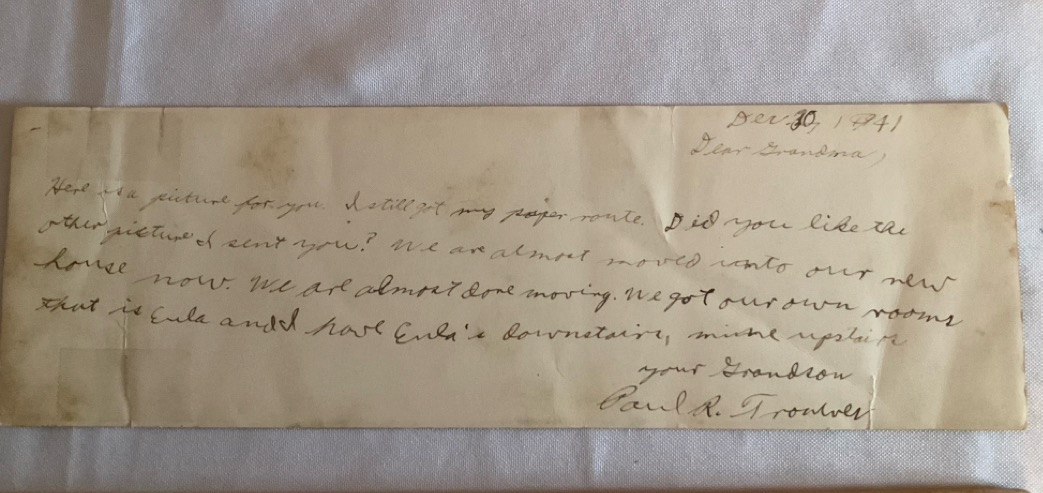 Dec. 30, 1941
Dear Grandma,
Here is a picture for you. I still got my paper route. Did you like the
other picture I sent you? We are almost moved into our new
house now. We are almost done moving. We got our own rooms
that is Eula and I have Eula's downstairs, mine upstairs
your Grandson
Paul R.